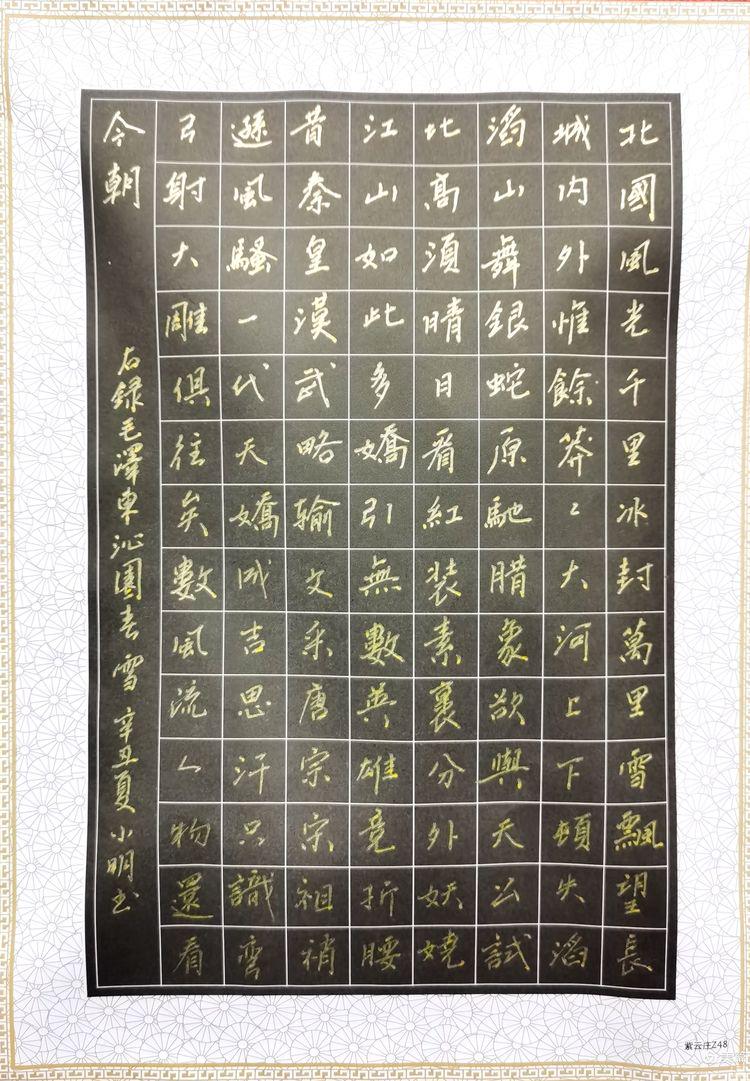 北國風光千里冰封萬里雪飄望長
城内外惟餘莽〻大河上下頓失滔
滔山舞銀蛇原馳腊象欲與天公試
比高須晴日看紅装素裹分外妖嬈
江山如此多嬌引無數英雄竟折腰
昔秦皇漢武略輸文采唐宗宋祖稍
遜風騷一代天嬌成吉思汗只識彎
弓射大雕俱往矣數風流人物還看
今朝
右録毛澤東沁園春雪 辛丑夏小明书
紫云庄Z48